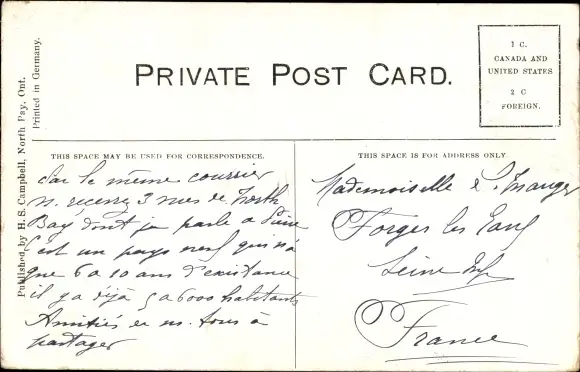 PRIVATE POST CARD.
1 C.
CANADA AND
UNITED STATES
2 C
FOREIGN.
Published by H. S. Campbell, North Bay, Ont.
Printed in Germany.
THIS SPACE MAY BE USED FOR CORRESPONDENCE.
Par le même courrier
v. recevrez 3 vues de North
Bay dont je parle à
C'est un pays neuf qui n'a
que 6 à 10 ans d'existence
il y a déjà 5 à 6000 habitants
Amitiés de ns. tous à
partager
THIS SPACE IS FOR ADDRESS ONLY
Mademoiselle
Forges les Eaux
Seine Inf
France